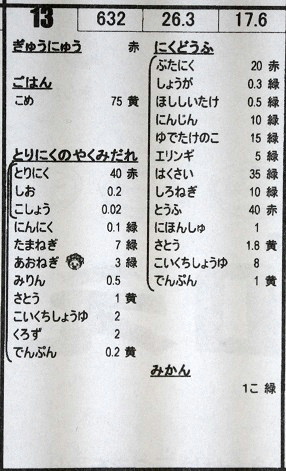 13 632 26.3 17.6
ぎゅうにゅう 赤
ごはん
こめ 75 黄
とりにくのやくみだれ
とりにく 40 赤
しお 0.2
こしょう 0.02
にんにく 0.1 緑
たまねぎ 7 緑
あおねぎ 3 緑
みりん 0.5
さとう 1 黄
こいくちしょうゆ 2
くろず 2
でんぷん 0.2 黄
にくどうふ
ぶたにく 20 赤
しょうが 0.3 緑
ほししいたけ 0.5 緑
にんじん 10 緑
ゆでたけのこ 15 緑
エリンギ 5 緑
はくさい 35 緑
しろねぎ 10 緑
とうふ 40 赤
にほんしゅ 1
さとう 1.8 黄
こいくちしょうゆ 8
でんぷん 1 黄
みかん
1こ 緑